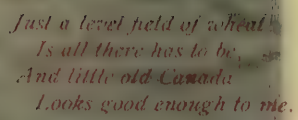 Just a level field of wheat
Is all there has to be,
And little old Canada
Looks good enough to me.